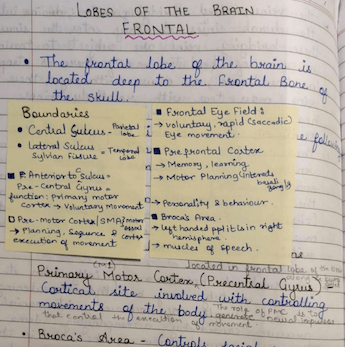 LOBES OF THE BRAIN
FRONTAL
• The frontal lobe of the brain is
located deep to the Frontal Bone of
the skull.
Boundaries
• Central Sulcus - Parietal lobe
• Lateral Sulcus
Sylvian Fissure = Temporal lobe
Anterior to C. Sulcus =
Pre-Central Gyrus =
function: primary motor
cortex → Voluntary movement
Pre-motor Cortex | SMA
→ Planning, Sequence &
execution of movement
Frontal Eye Field:
→ voluntary, rapid (saccadic)
Eye movement.
Prefrontal Cortex
→ Memory, learning.
→ Motor Planning
→ Personality & behaviour.
Broca's Area -
→ left handed ppl it is in right
hemisphere.
→ muscles of speech.
located in frontal lobe of the
Primary Motor Cortex (Precentral Gyrus)
Cortical site involved with controlling
movements of the body.
The role of PMC is to
generate neural impulses
that control the execution of movement
• Broca's Area - Controls